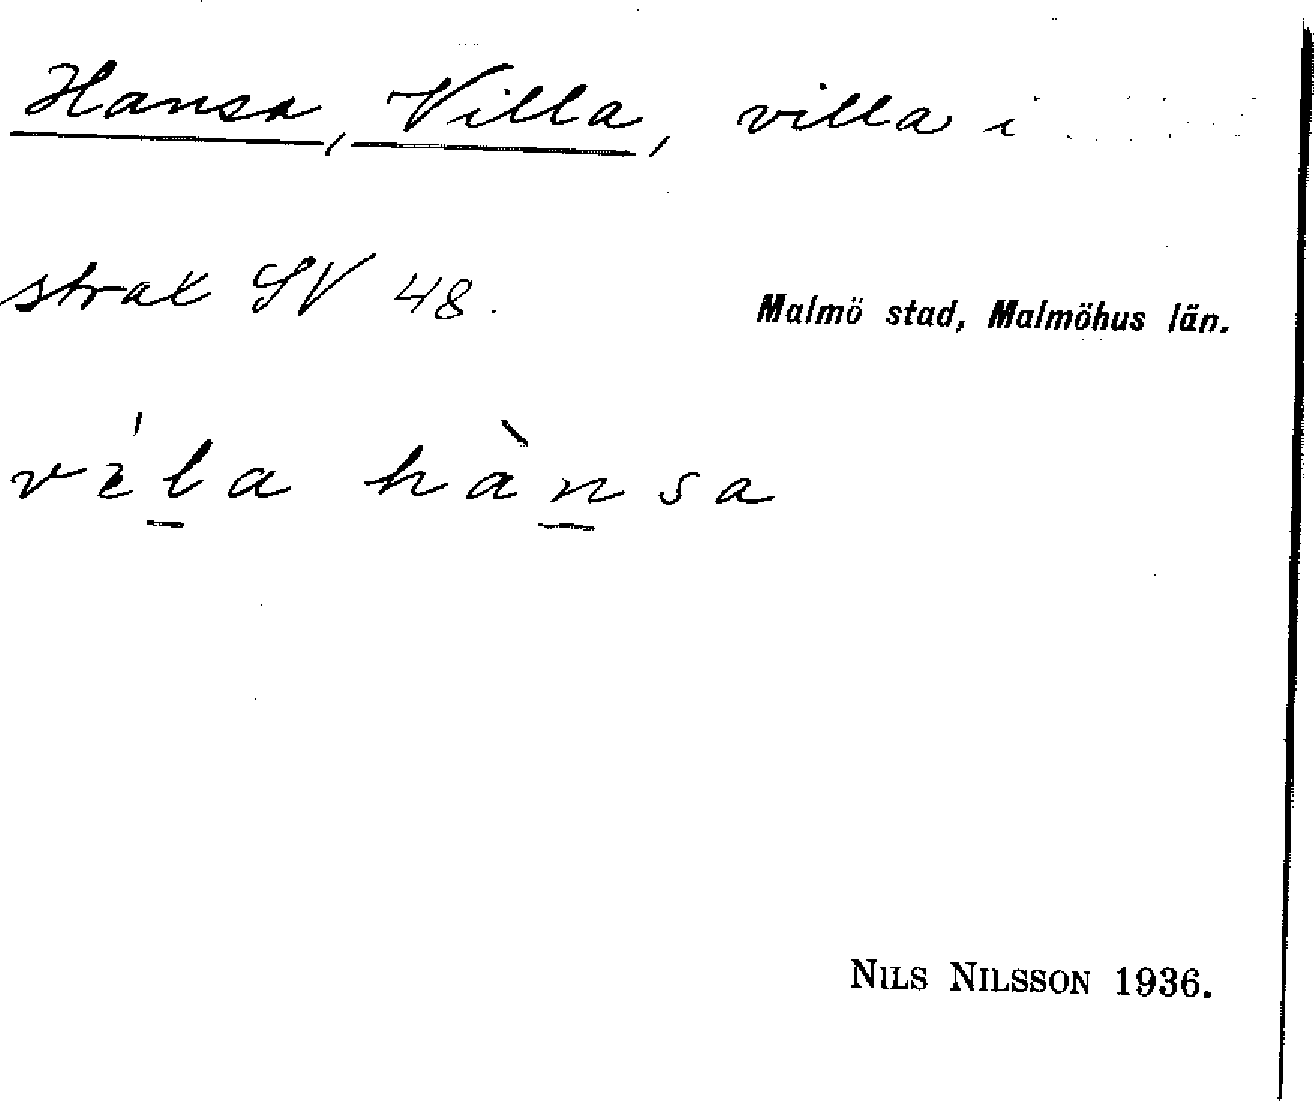 Hansa, Villa, villa i
strax SV 48.
Malmö stad, Malmöhus län.
vela hànsa
NILS NILSSON 1936.